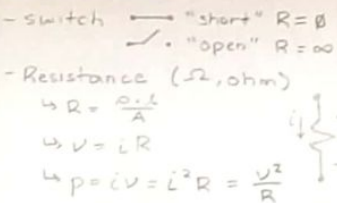 - switch "short" R = ∅
"open" R = ∞
- Resistance (Ω, ohm)
↳ R = ρ·l/A
↳ v = iR
↳ p = iv = i²R = v²/R
i↓